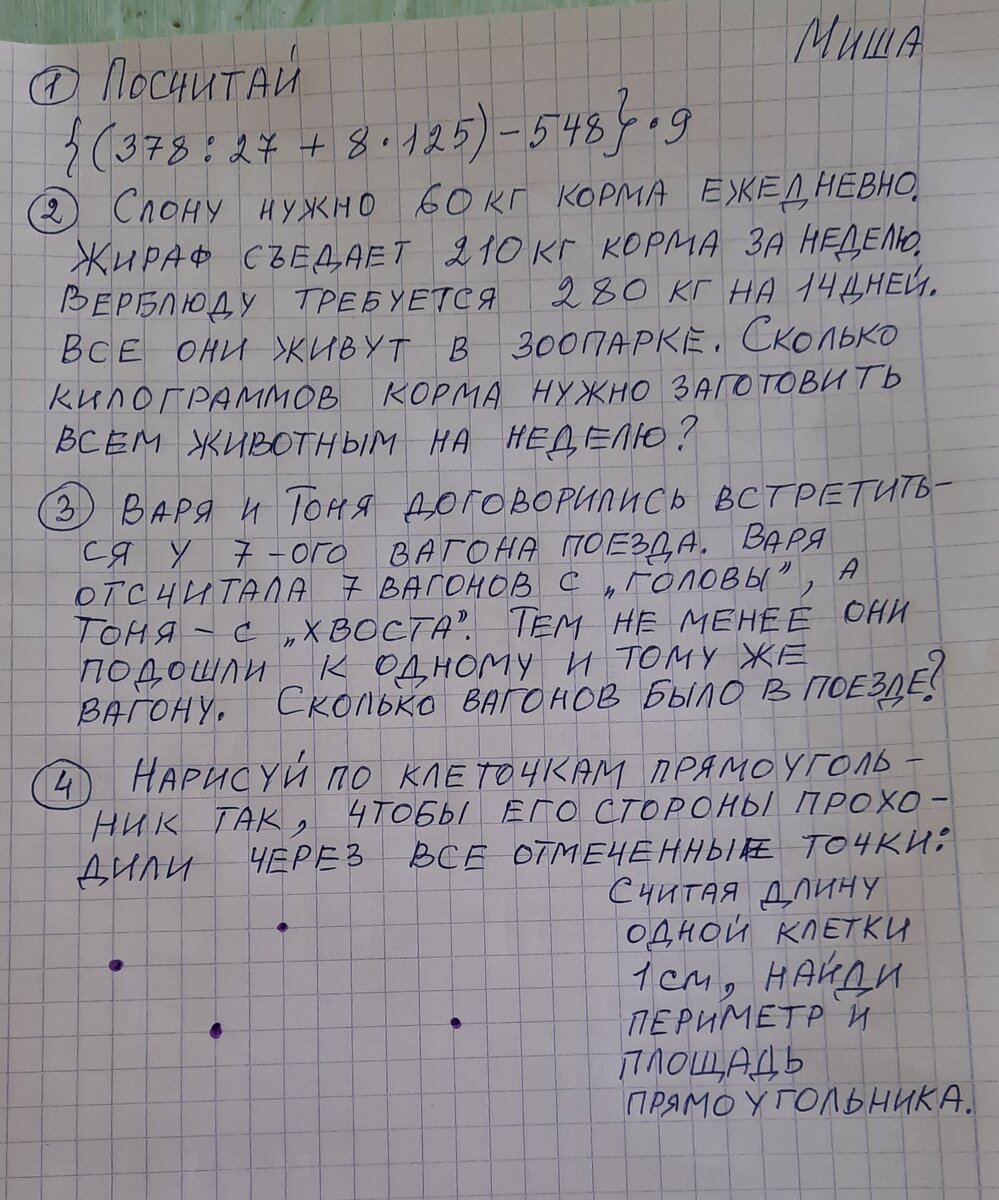 Миша
① Посчитай
{(378:27 + 8·125) – 548}·9
② Слону нужно 60 кг корма ежедневно.
Жираф съедает 210 кг корма за неделю.
Верблюду требуется 280 кг на 14 дней.
Все они живут в зоопарке. Сколько
килограммов корма нужно заготовить
всем животным на неделю?
③ Варя и Тоня договорились встретить-
ся у 7-ого вагона поезда. Варя
отсчитала 7 вагонов с „головы”, а
Тоня – с „хвоста”. Тем не менее они
подошли к одному и тому же
вагону. Сколько вагонов было в поезде?
④ Нарисуй по клеточкам прямоуголь-
ник так, чтобы его стороны прохо-
дили через все отмеченные точки:
Считая длину
одной клетки
1 см, найди
периметр и
площадь
прямоугольника.